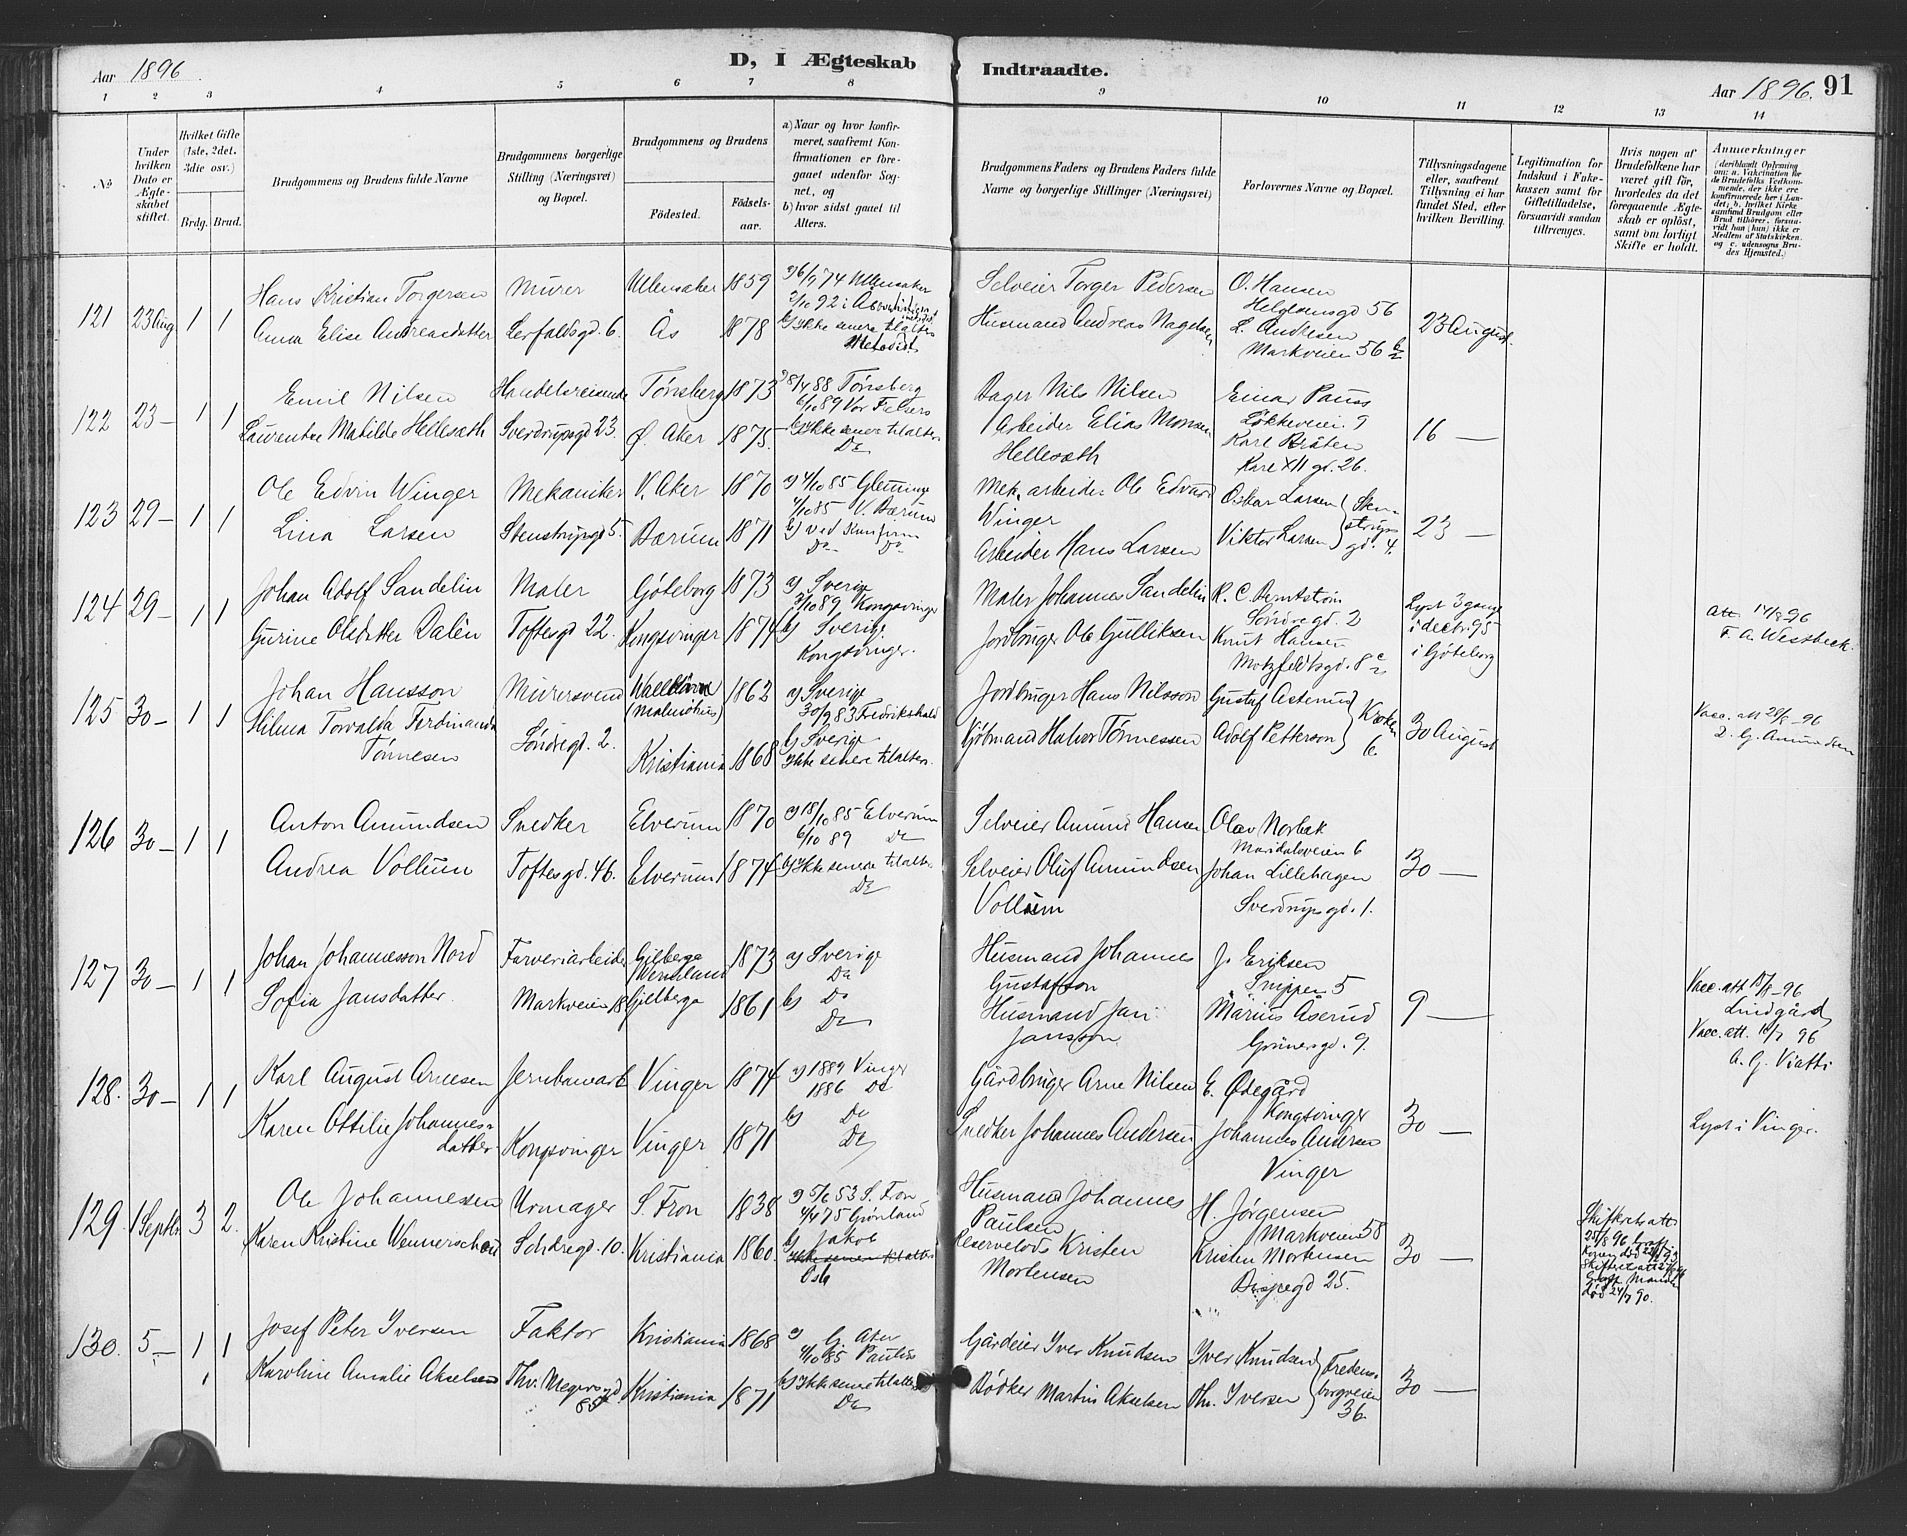 Aar 1896.
D, I Ægteskab
Indtraadte.
Aar 1896. 91
1 2 3 4 5 6 7 8 9 10 11 12 13 14
No
Under hvilken Dato er Ægteskabet stiftet.
Hvilket Gifte (1ste, 2det. 3die osv.)
Brdg. Brud.
Brudgommens og Brudens fulde Navne
Brudgommens borgerlige Stilling (Næringsvei) og Bopæl.
Brudgommens og Brudens
Fødested.
Fødselsaar.
a) Naar og hvor konfirmeret, saafremt Konfirmationen er foregaaet udenfor Sognet, og
b) hvor sidst gaaet til Alters.
Brudgommens Faders og Brudens Faders fulde Navne og borgerlige Stillinger (Næringsvei)
Forlovernes Navne og Bopæl.
Tillysningsdagene eller, saafremt Tillysning ei har fundet Sted, efter hvilken Bevilling.
Legitimation for Indskud i Enkekassen samt for Giftetilladelse, forsaavidt saadan tiltrænges.
Hvis nogen af Brudefolkene har været gift før, hvorledes da det foregaaende Ægteskab er opløst, samt om lovligt Skifte er holdt.
Anmerkninger
121 23 Aug 1 1
Hans Kristian Torgersen
Anna Elise Andreasdatter
Murer
Lerfaldsgd. 6.
Ullensaker 1859
Ås 1878
Ullensaker
b) Ikke senere tilalters
Metodist
Selveier Torger Pedersen
Husmand Andreas Nagelsen
O. Hansen
Helgesensgd 56
L. Andresen
Markveien 56
23 August.
122 23 — 1 1
Emil Nilsen
Laurentze Matilde Hellesæth
Handelsreisende
Sverdrupsgd 23.
Tønsberg 1873
Ø. Aker 1875
8/4 88 Tønsberg
6/10 89 Vor Frelsers
b) Ikke senere tilalters
Do
Bager Nils Nilsen
Arbeider Elias Monsen Hellesæth
Einar Pauss
Løkkeveien 9
Karl Bråten
Karl XII gd. 26.
16 —
123 29 — 1 1
Ole Edvin Winger
Lina Larsen
Mekaniker
Stenstrupgd 5.
V. Aker 1870
Bærum 1871
a) 4/10 85 Glemminge
4/10 85 V. Bærum
b) Ved Konfirm
Do Do
Mek. arbeider Ole Edvard Winger
Arbeider Hans Larsen
Oskar Larsen
Viktor Larsen
Stenstrups gd. 4.
23 —
124 29 — 1 1
Johan Adolf Sandelin
Gurine Olsdatter Dalén
Maler
Toftesgd 22.
Göteborg 1873
Kongsvinger 1874
a) Sverige
2/10 89 Kongsvinger
b) Sverige
Kongsvinger.
Maler Johannes Sandelin
Jordbruger Ole Gulliksen
R. C. Berntström
Söndregd. 2
Knut Hansen
Motzfeldtsgd. 8
Lyst 3 gange i decbr. 95 i Göteborg
att 14/8 96
F. A. Westbeck.
125 30 — 1 1
Johan Hansson
Hilma Torvalda Ferdinanda Tønnesen
Murersvend
Söndregd. 2.
(Malmöhus) 1862
Kristiania 1868
a) Sverige
30/9 83 Fredrikshald
b) Sverige
Ikke senere tilalters.
Jordbruger Hans Nilsson
Halvor Tønnessen
Gustaf Asterud
Adolf Petterson
6.
30 August
Vacc. att 28/8 96
G. Amundsen
126 30 — 1 1
Anton Amundsen
Andrea Vollum
Snedker
Toftesgd. 46.
Elverum 1870
Elverum 1874
a) 18/10 85 Elverum
6/10 89 Do
b) Ikke senere tilalters
Do
Selveier Amund Hansen
Selveier Oluf Amundsen Vollum
Olav Norbæk
Maridalsveien 6
Johan Lillehagen
Sverdrupsgd. 1.
30 —
127 30 — 1 1
Johan Johannesson Nord
Sofia Jansdatter.
Farveriarbeider
Markveien 18
Gilberga Wermland 1873
Gilberga 1861
a) Sverige
Do
b) Do
Do
Husmand Johannes Gustafson
Husmand Jan Jansson
J. Eriksen
Snippen 5
Marius Åserud
Grünersgd. 9.
9 —
Vacc. att 18/8 96
Lindgård
Vacc. att. 96
A. G. Viatti
128. 30 — 1 1
Karl August Arnesen
Karen Ottilie Johannesdatter
Jernbanearb
Kongsvinger
Vinger 1874
Vinger 1871
a) 1889 Vinger
1886 Do
b) Do
Do
Gårdbruger Arne Nilsen
Snedker Johannes Andersen
E. Ødegård
Kongsvinger
Johannes Andersen
Vinger
30 —
Lyst i Vinger.
129. 1 Septbr 3 2.
Ole Johannessen
Karen Kristine Wennerschou
Urmager
Söndregd. 10.
S. Fron 1838
Kristiania 1860.
53 S. Fron
4/4 75 Grønland
b) Jakob
Ikke senere tilalters
Oslo
Husmand Johannes Paulsen
Reservelods Kristen Mortensen
H. Jørgensen
Markveien 58
Kristen Mortensen
Bispegd 25.
30 —
Skifteretsatt
25/8 96
Konen død
Skifteretsatt
Mand
død 24/7 90.
130. 5 — 1 1
Josef Peter Iversen
Karoline Amalie Akselsen
Faktor
Thv. Meyersgd 85
Kristiania 1868
Kristiania 1871
a) G. Aker
4/10 85 Paulus
b) Ikke senere tilalters
Do
Gårdeier Iver Knudsen
Bødker Martin Akselsen
Iver Knudsen
Th. Iversen
Fredensborgveien 36.
30 —